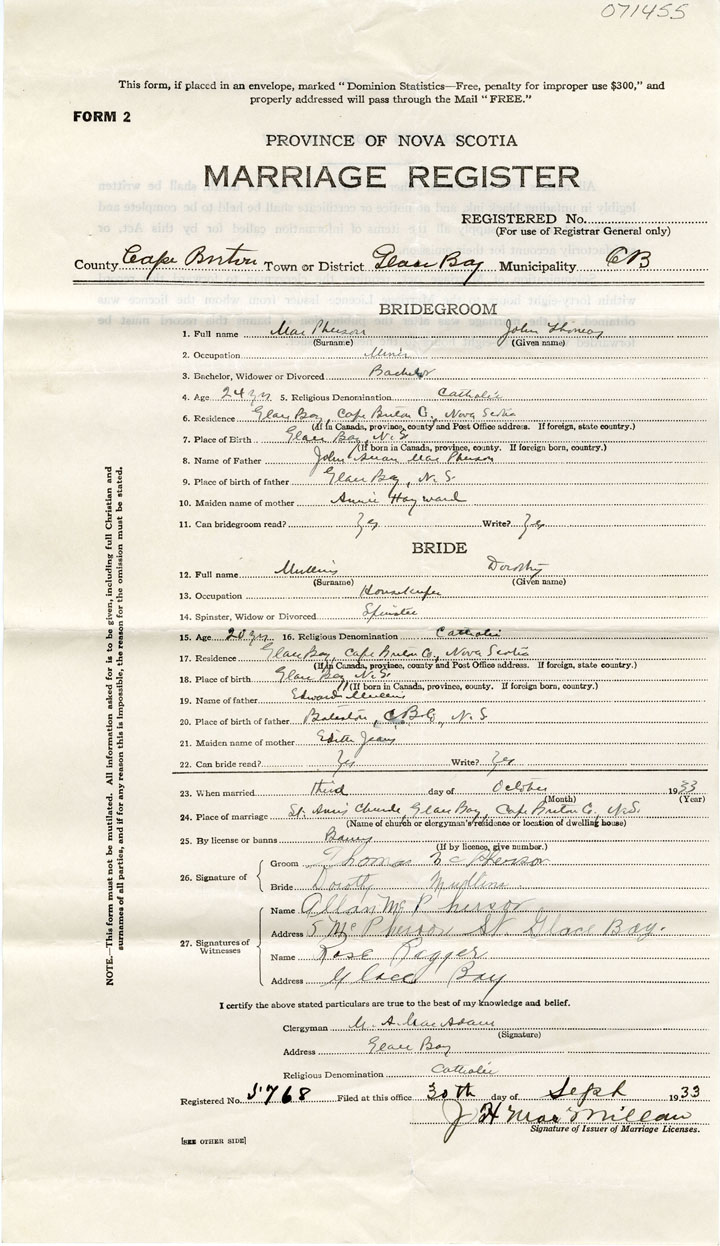 071455
This form, if placed in an envelope, marked "Dominion Statistics—Free, penalty for improper use $300," and
properly addressed will pass through the Mail "FREE."
FORM 2
PROVINCE OF NOVA SCOTIA
MARRIAGE REGISTER
REGISTERED No.
(For use of Registrar General only)
County Cape Breton Town or District Glace Bay Municipality CB
BRIDEGROOM
1. Full name MacPherson John Thomas
(Surname) (Given name)
2. Occupation Miner
3. Bachelor, Widower or Divorced Bachelor
4. Age 24 yrs 5. Religious Denomination Catholic
6. Residence Glace Bay, Cape Breton C, Nova Scotia
(If in Canada, province, county and Post Office address. If foreign, state country.)
7. Place of Birth Glace Bay, N.S.
(If born in Canada, province, county. If foreign born, country.)
8. Name of Father John Allan MacPherson
9. Place of birth of father Glace Bay, N.S.
10. Maiden name of mother Annie Hayward
11. Can bridegroom read? Yes Write? Yes
BRIDE
12. Full name Mullins Dorothy
(Surname) (Given name)
13. Occupation Housekeeper
14. Spinster, Widow or Divorced Spinster
15. Age 20 yrs 16. Religious Denomination Catholic
17. Residence Glace Bay, Cape Breton C, Nova Scotia
(If in Canada, province, county and Post Office address. If foreign, state country.)
18. Place of birth Glace Bay N.S.
(If born in Canada, province, county. If foreign born, country.)
19. Name of father Edward Mullins
20. Place of birth of father , N.S
21. Maiden name of mother Edith Jeans
22. Can bride read? Yes Write? Yes
23. When married third day of October 1933
(Month) (Year)
24. Place of marriage St. Ann's Church, Glace Bay, Cape Breton C, N.S.
(Name of church or clergyman's residence or location of dwelling house)
25. By license or banns Banns
(If by licence, give number.)
26. Signature of
Groom Thomas McPherson
Bride Dorothy Mullins
27. Signatures of Witnesses
Name Allan McPherson
Address 5 McPherson St. Glace Bay.
Name Rose
Address Glace Bay
I certify the above stated particulars are true to the best of my knowledge and belief.
Clergyman M. A. MacAdam
(Signature)
Address Glace Bay
Religious Denomination Catholic
Registered No. 5768 Filed at this office 30th day of Sept 1933
J H MacMillan
Signature of Issuer of Marriage Licenses.
[SEE OTHER SIDE]
NOTE.—This form must not be mutilated. All information asked for is to be given, including full Christian and
surnames of all parties, and if for any reason this is impossible, the reason for the omission must be stated.